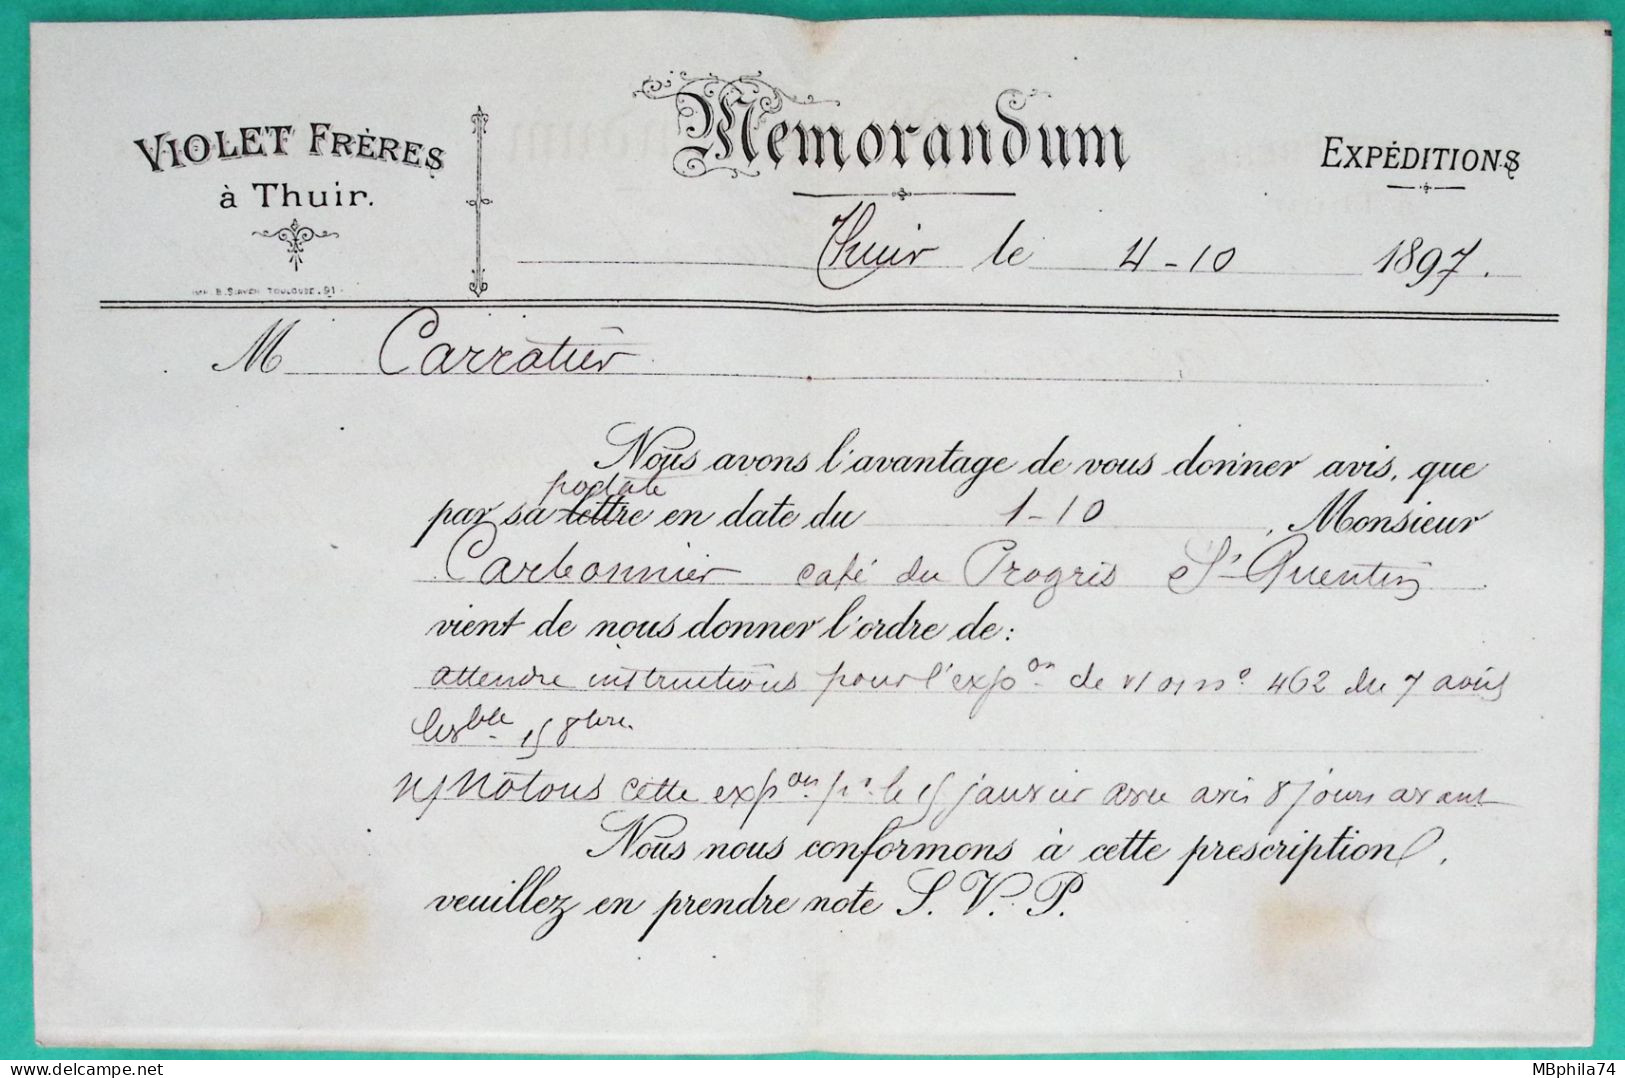 VIOLET FRÈRES
à Thuir.
Memorandum
EXPÉDITIONS
Thuir le 4-10 1897.
IMP. B. SIRVEN TOULOUSE. 91
M Carratier
Nous avons l'avantage de vous donner avis, que
postale
par sa lettre en date du 1-10, Monsieur
Carbonnier café du Progrès St Quentin
vient de nous donner l'ordre de:
attendre instructions pour l'expon de n° 462 du 7 août
15 8bre.
n/ Notons cette expon pr le 15 janvier avec avis 8 jours avant
Nous nous conformons à cette prescription,
veuillez en prendre note S. V. P.
MBphila74